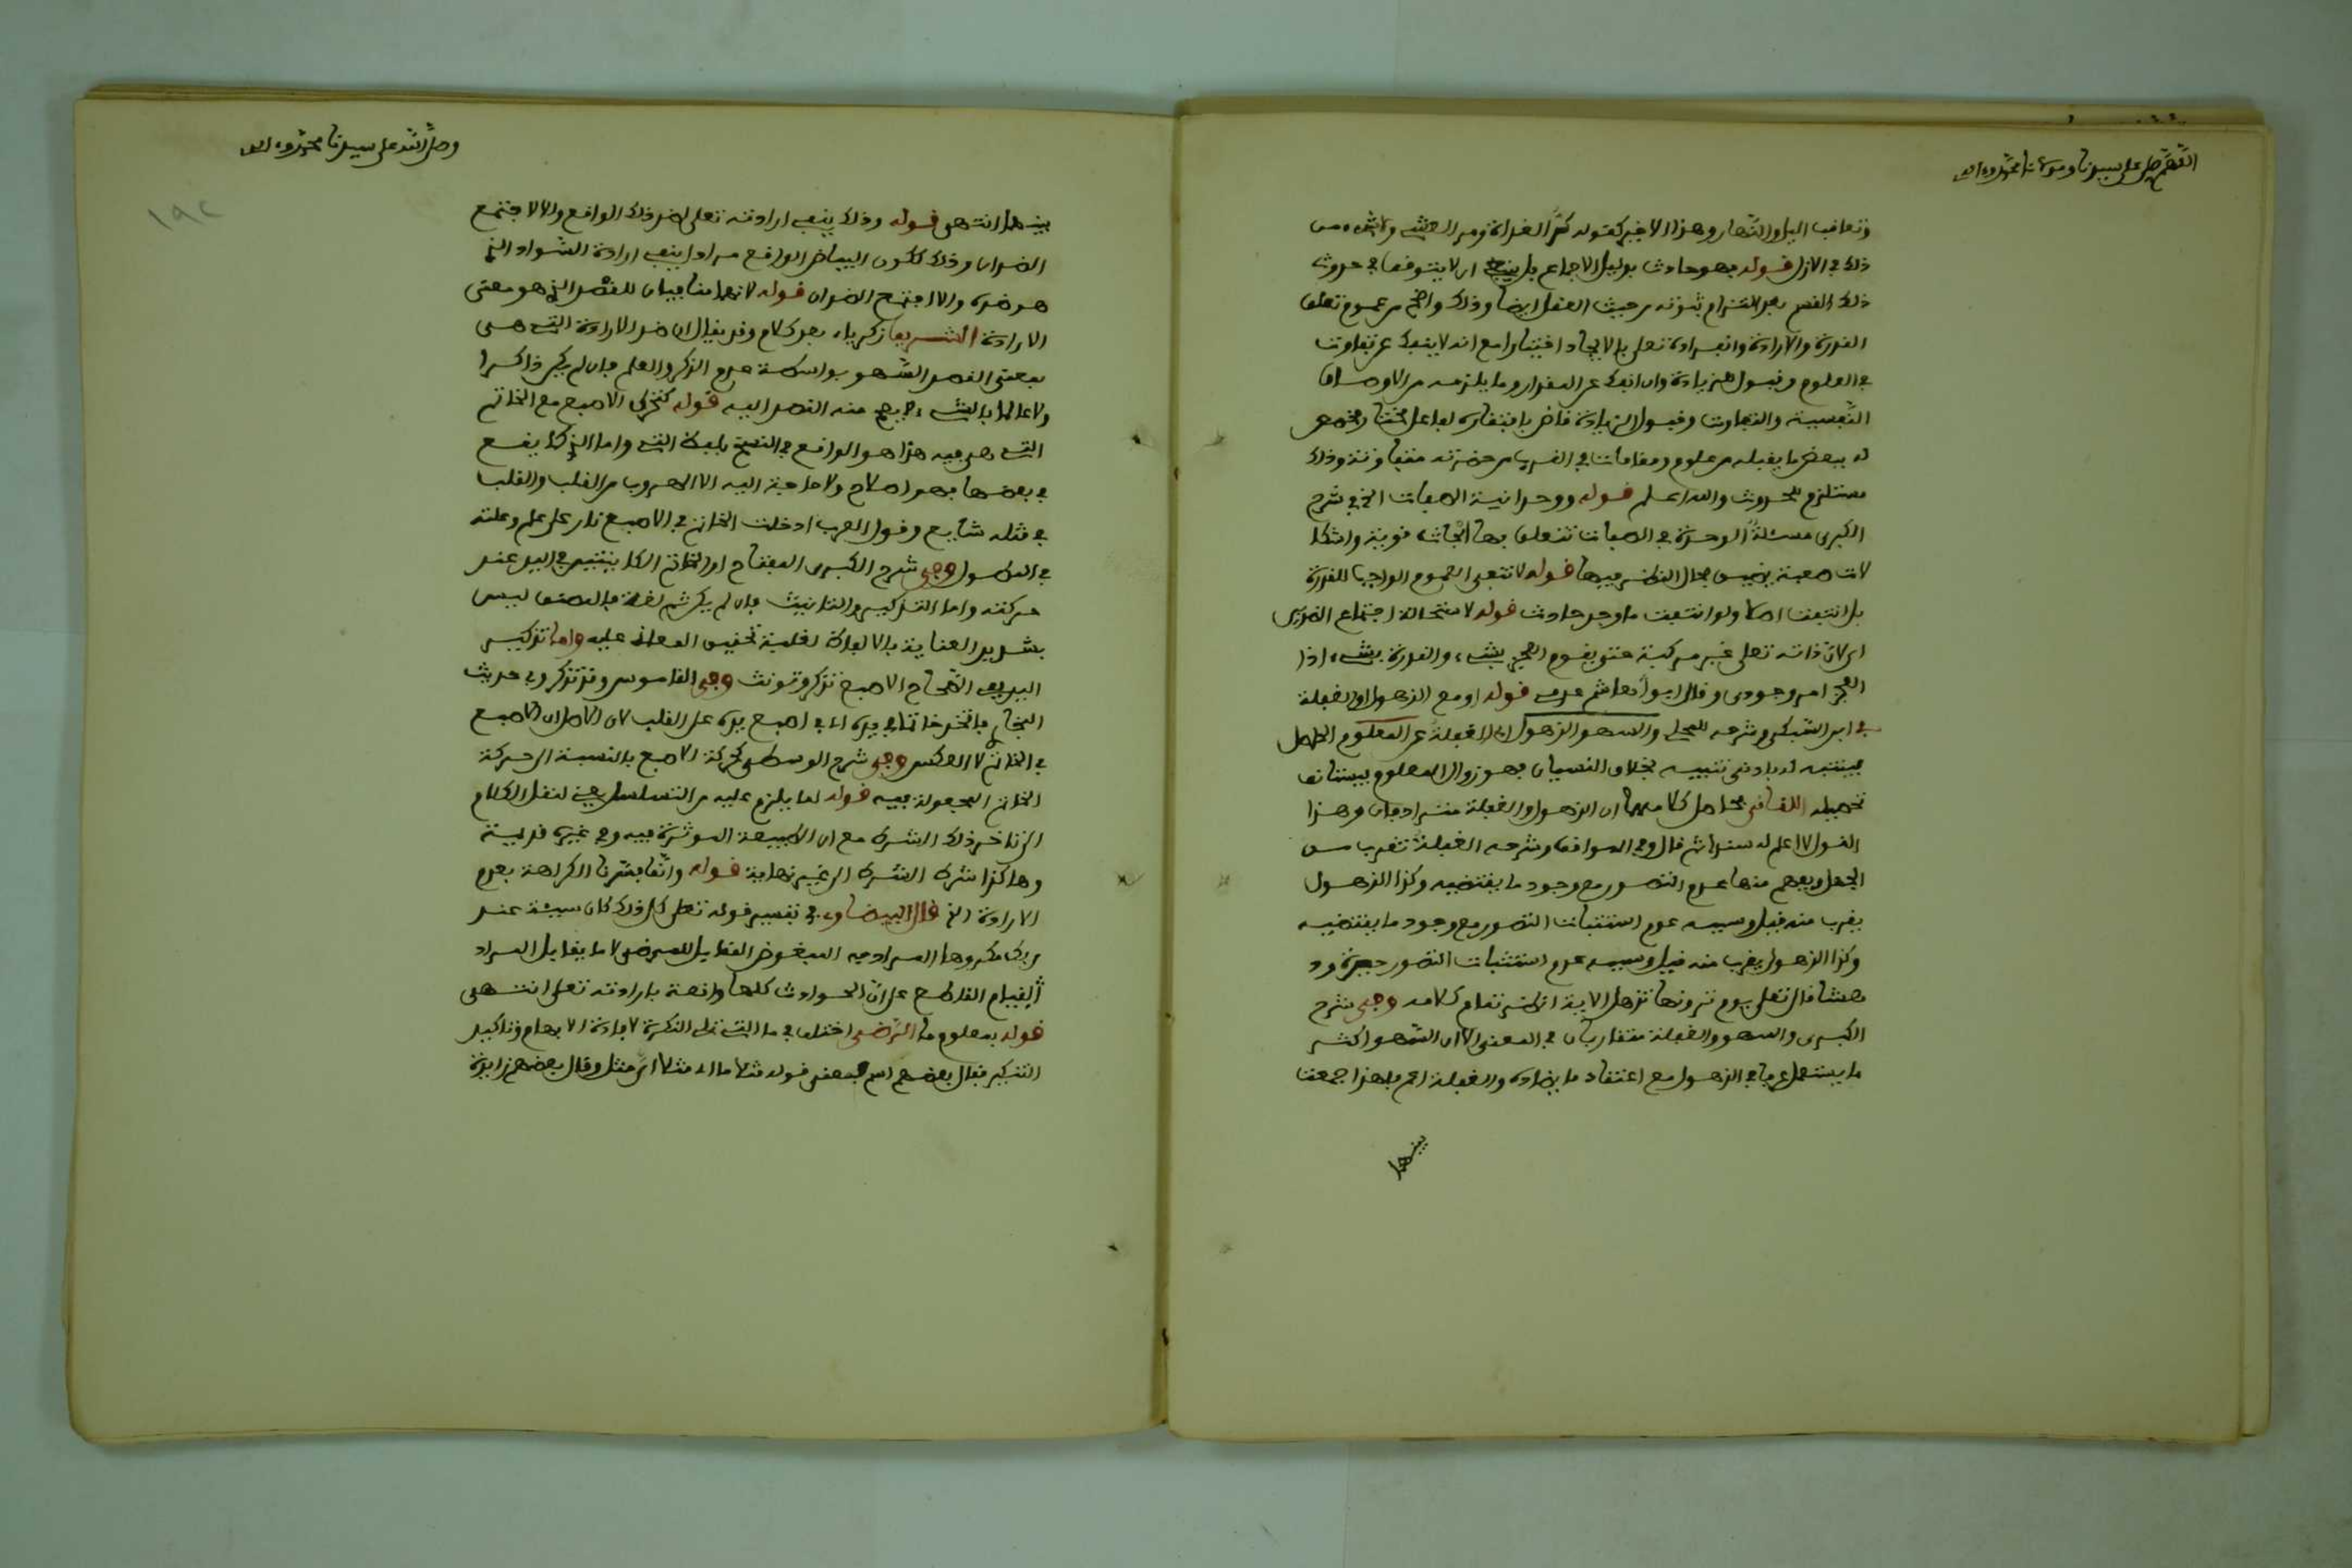 اللهم صل على سيدنا ومولانا محمد وءاله
وتعاقب اليل والنهار وهذا الاخير كقوله كر الغداة ومر العشي ولا شيء من
ذلك في الازل قوله فهو حادث بدليل الاجماع بل ينبغي ان لا يتوقف في حدوث
ذلك القسم بعد التزام ثبوته من حيث العقل ايضا وذلك واضح من عموم تعلق
القدرة والارادة وانفراده تعلى بالايجاد اختيارا مع انه لا ينفك عن تفاوت
في العلوم وقبول للزيادة وان انفك عن المقدار وما يلزمه من الاوصاف
النفسية والتفاوت وقبول الزيادة قاض بافتقاره لفاعل مختار يخصصه
له ببعض ما يقبله من علوم ومقامات في القرب من حضرته متفاوتة وذلك
مستلزم للحدوث والله اعلم قوله ووحدانية الصفات الخ في شرح
الكبرى مسئلة الوحدة في الصفات تتعلق بها ابحاث قوية واشكا
لات صعبة يضيق مجال النظر فيها قوله لا تتفى العموم الواجب للقدرة
بل انتفت اصلا ولو انتفت ما وجد حادث قوله لاستحالة اجتماع الضدين
اي لان ذاته تعلى غير مركبة حتى يقوم العجز بشيء والقدرة بشيء اذا
العجز امر وجودي وقال ابو هاشم عدمه قوله او مع الذهول او الغفلة
في ابن السبكي وشرحه للمحلي والسهو الذهول اي الغفلة عن المعلوم الحاصل
فيتنبه له بادنى تنبيه بخلاف النسيان فهو زوال المعلوم فيستانف
تحصيله اللقاني حاصل كلامهما ان الذهول والغفلة مترادفان وهذا
القول لا اعلم له سندا ثم قال وفي المواقف وشرحه الغفلة تقرب من
الجهل ويفهم منها عدم التصور مع وجود ما يقتضيه وكذا الذهول
يقرب منه قيل وسببه عدم استثبات التصور مع وجود ما يقتضيه
وكذا الذهول يقرب منه قيل وسببه عدم استثبات التصور حيرة ود
هشا قال تعلى يوم ترونها تذهل الاية انظر تمام كلامه وفي شرح
الكبرى والسهو والغفلة متقاربان في المعنى الا ان السهو اكثر
ما يستعمل عرفا في الذهول مع اعتقاد ما يضاده والغفلة اعم فلهذا جمعت
بينهما
وصلى الله على سيدنا محمد وءاله
١٩٢
بينهما انتهى قوله وذلك ينفي ارادته تعلى لضد ذلك الواقع والا لاجتمع
الضدان وذلك ككون البياض الواقع مرادا ينفي ارادة السواد الذي
هو ضده والا اجتمع الضدان قوله لانهما منافيان للقصد الذي هو معنى
الارادة الشريف زكرياء بعد كلام وقد يقال ان ضد الارادة التي هي
بمعنى القصد السهو بواسطة عدم الذكر والعلم فان لم يكن ذاكرا
ولا عالما بالشيء لا يصح منه القصد اليه قوله كتحرك الاصبع مع الخاتم
التي هي فيه هذا هو الواقع في النسخ بلفظ التي واما الذي كما يقع
في بعضها فهو اصلاح ولا حاجة اليه الا الهروب من القلب والقلب
في مثله شايع وقول العرب ادخلت الخاتم في الاصبع نار على علم وعلته
في المطول وفي شرح الكبرى المفتاح او الخاتم الكاينين في اليد عند
حركته واما التذكير والتانيث فان لم يكن ثم لغة فالمصنف ليس
بشديد العناية بالالفاظ لغلبة تحقيق المعاني عليه واما تذكير
اليد ففي الصحاح الاصبع تذكر وتونث وفي القاموس وقد تذكر وفي حديث
البخاري فاتخذ خاتما في يده اي في اصبع يده على القلب لان الاصل ان الاصبع
في الخاتم لا العكس وفي شرح الوسطى كحركة الاصبع بالنسبة الى حركة
الخاتم المجعولة فيه قوله لما يلزم عليه من التسلسل يعني لنقل الكلام
الى تاخر ذلك الشرط مع ان الطبيعة الموثرة فيه وفي غيره قديمة
وهاكذا شرط الشرط الى غير نهاية قوله وانما فسرنا الكراهة بعدم
الارادة الخ قال البيضاوي في تفسير قوله تعلى كل ذلك كان سيئة عند
ربك مكروها المراد به المبغوض المقابل للمرضى لا ما يقابل المراد
لقيام القاطع على ان الحوادث كلها واقعة بارادته تعلى انتهى
قوله بمعلوم ما الرضي اختلف في ما التي تلي النكرة لافادة الابهام وتاكيد
التنكير فقال بعضهم اسم فمعنى قوله مثلا ما اي مثلا اي مثل وقال بعضهم زايدة